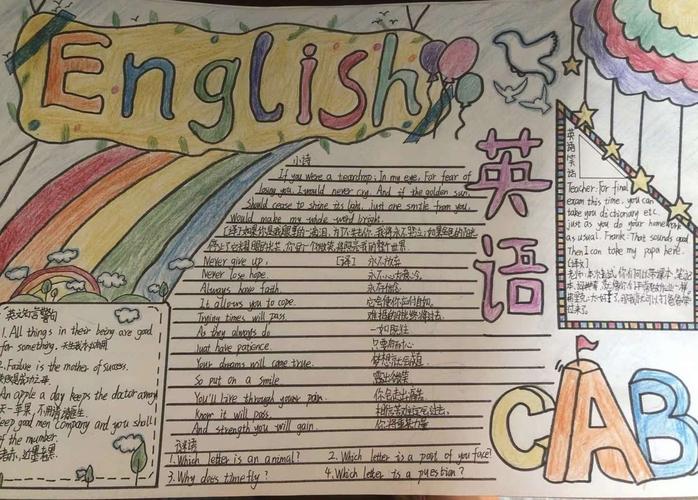 English
英语
小诗
If you were a teardrop; In my eye, For fear of
losing you, I would never cry. And if the golden sun,
Should cease to shine its light, Just one smile from you,
Would make my whole world bright.
Never give up,
[译]
永不放弃
Never lose hope.
永不心灰意冷。
Always have faith,
永存信念
It allows you to cope.
它会使你应付自如。
Trying times will pass,
As they always do.
一如既往
Just have patience,
只要有耐心
Your dreams will come true.
梦想就会成真
So put on a smile
露出微笑
You'll live through your pain.
你会走出痛苦
Know it will pass,
相信苦难定会过去
And strength you will gain.
你将重获力量
谜语
1.Which letter is an animal?
2. Which letter is a part of you face?
3.Why does time fly?
4.Which letter is a question?
英语笑话
Teacher: For final
exam this time, you can
take you dictionary etc.
just as you do your homework
as usual. Frank: That sounds good
Then I can take my papa here.
[译文]
英文名言警句
1. All things in their being are good
for something. 天生我才必有用
2. Failure is the mother of success.
失败是成功之母
An apple a day keeps the doctor away
天一苹果,不用请医生
keep good men company and you shall
of the number.
者赤,近墨者黑
CAB